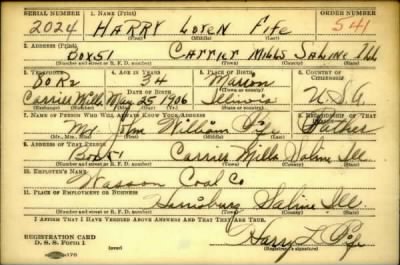 SERIAL NUMBER 1. NAME (Print) ORDER NUMBER
2024 HARRY LOREN FIFE 541
(First) (Middle) (Last)
2. ADDRESS (Print)
Box 51 CARRIER MILLS SALINE ILL
(Number and street or R. F. D. number) (Town) (County) (State)
3. TELEPHONE 4. AGE IN YEARS 5. PLACE OF BIRTH 6. COUNTRY OF CITIZENSHIP
34 Marion
DATE OF BIRTH
Carrier Mills May 25 1906 Illinois U.S.A
(Exchange) (Number) (Mo.) (Day) (Yr.) (State or country)
7. NAME OF PERSON WHO WILL ALWAYS KNOW YOUR ADDRESS 8. RELATIONSHIP OF THAT PERSON
Mr John William Fife Father
(Mr., Mrs., Miss) (First) (Middle) (Last)
9. ADDRESS OF THAT PERSON
Box 51 Carrier Mills Saline Ill
(Number and street or R. F. D. number) (Town) (County) (State)
10. EMPLOYER'S NAME
Wasson Coal Co
11. PLACE OF EMPLOYMENT OR BUSINESS
Harrisburg Saline Ill.
(Number and street or R. F. D. number) (Town) (County) (State)
I AFFIRM THAT I HAVE VERIFIED ABOVE ANSWERS AND THAT THEY ARE TRUE.
REGISTRATION CARD
D. S. S. Form 1 (over) Harry L Fife
(Registrant's signature)